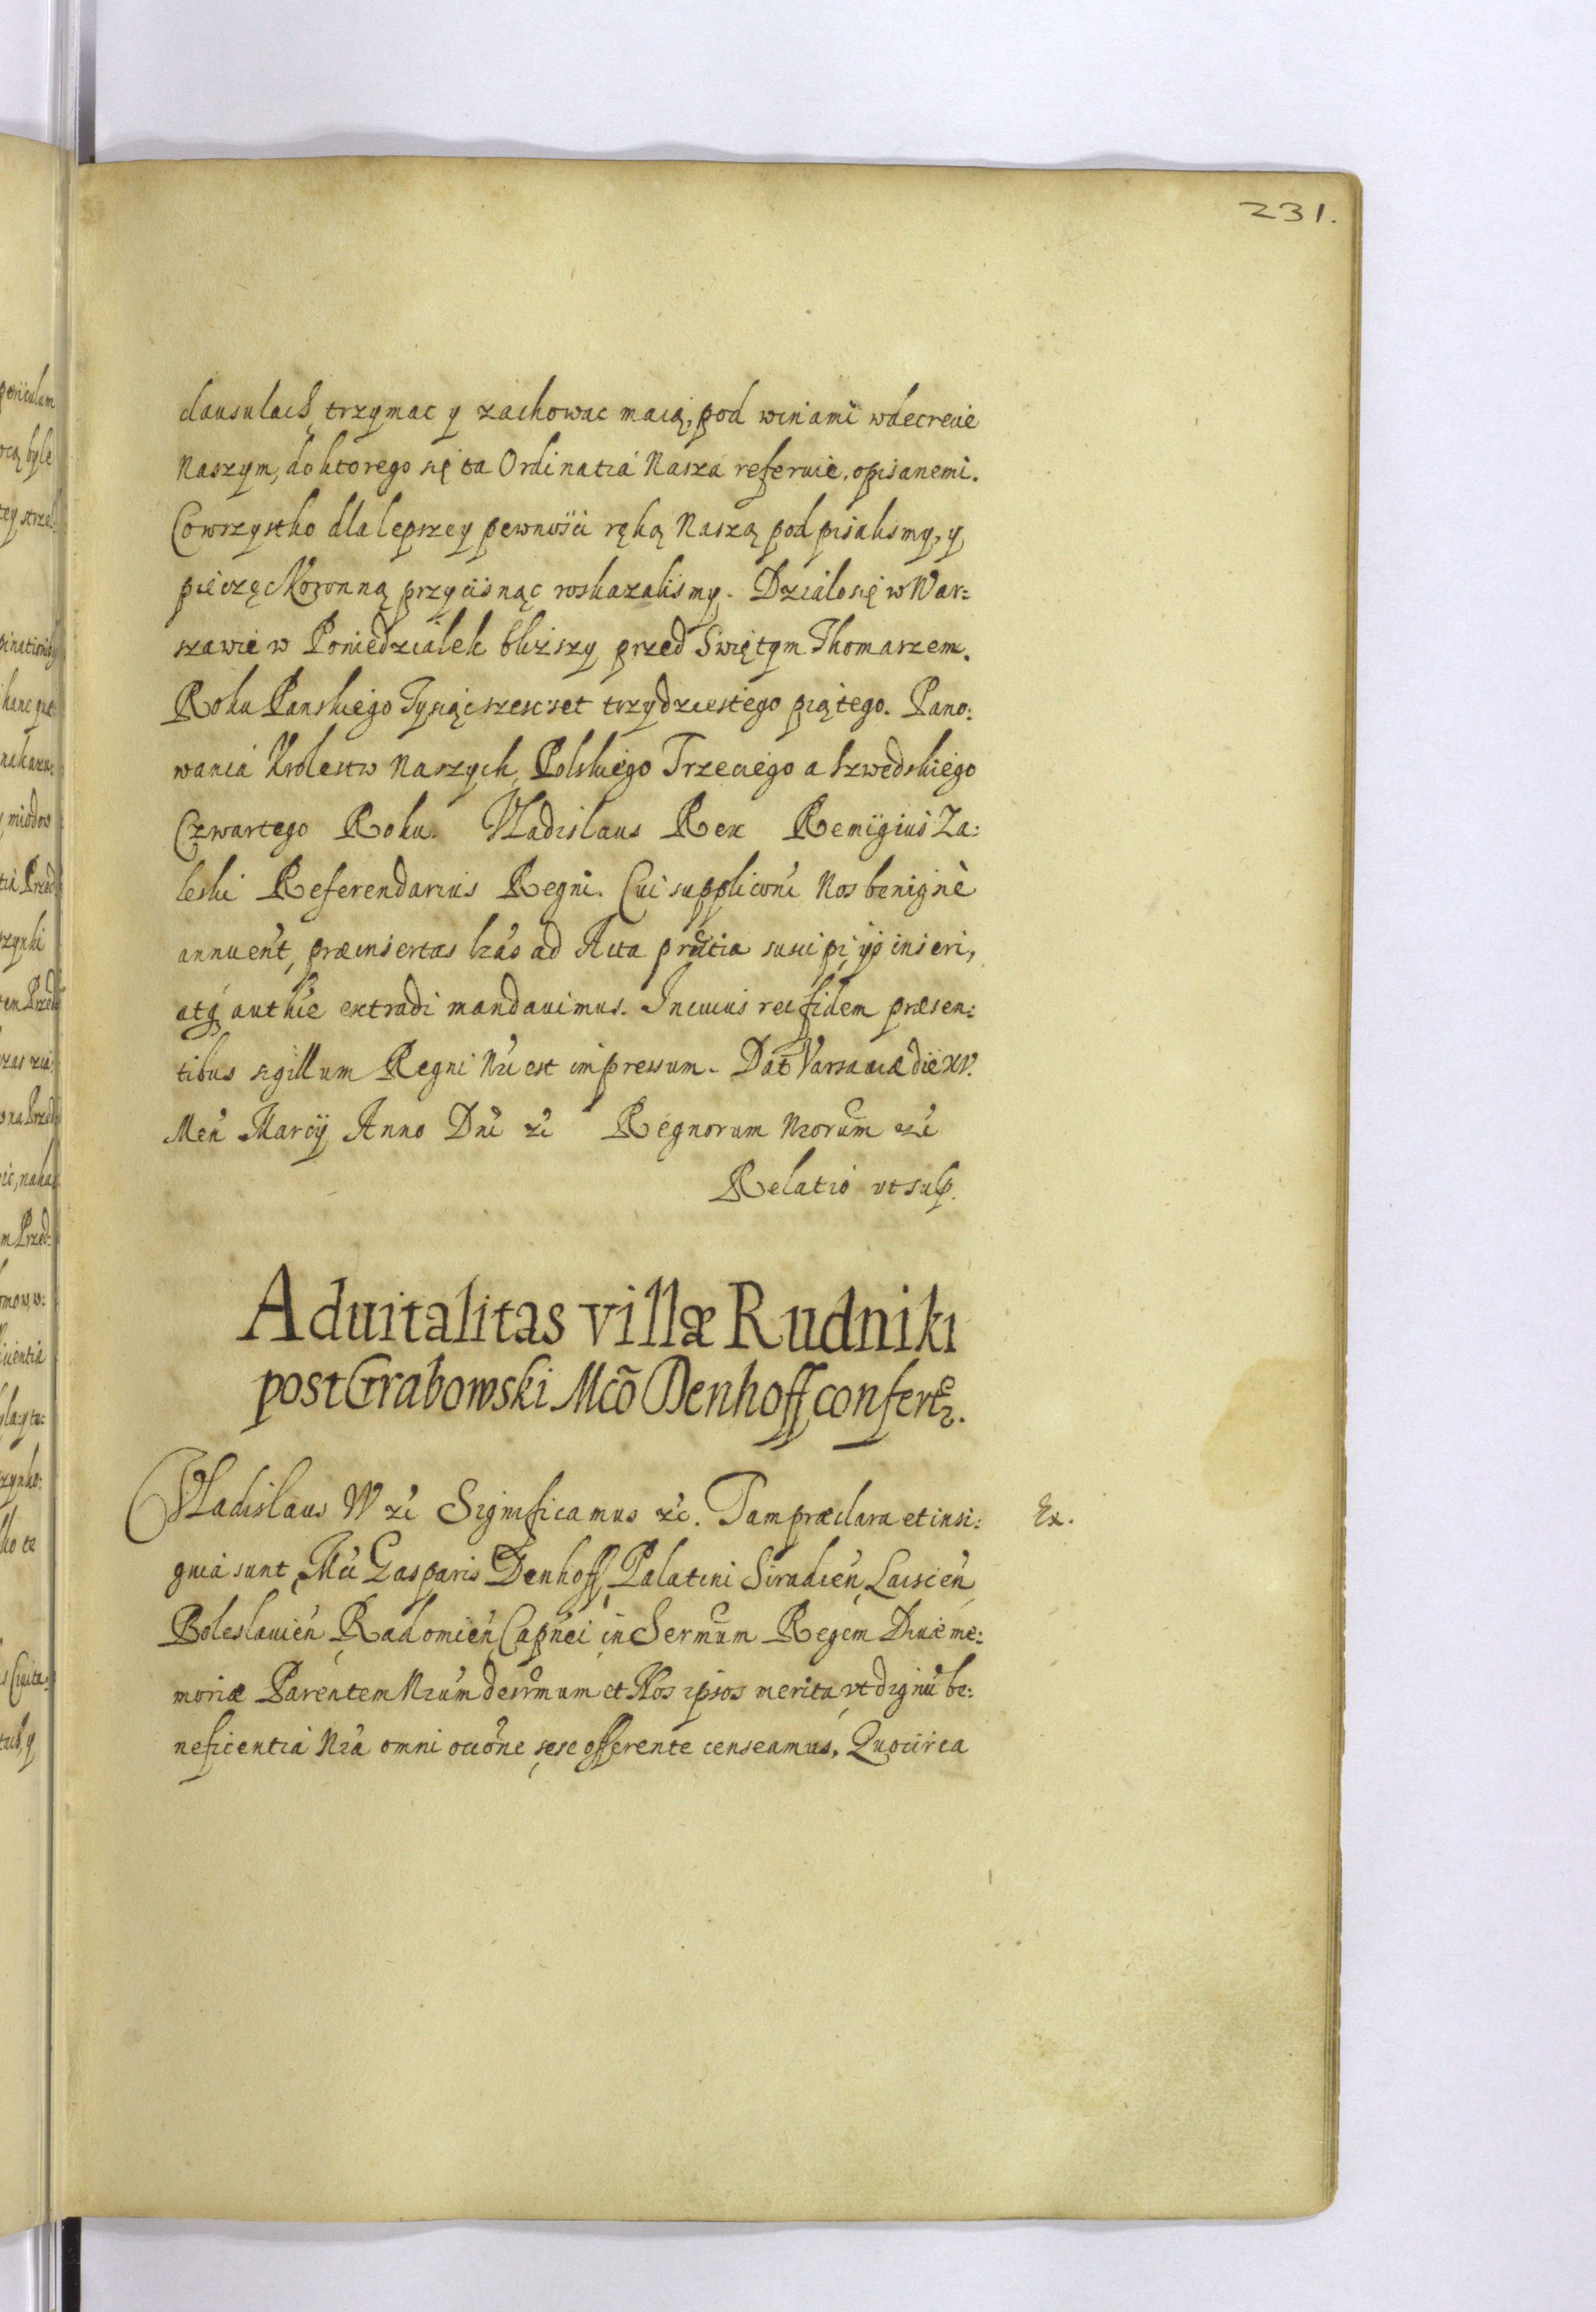 231.
clausulach, trzymac y zachowac maią, pod winami wdecrecie
Naszym, doktorego się ta Ordinatia Nasza referuie, opisanemi.
Cowszystko dla lepszey pewności ręką Naszą podpisalismy, y
pieczęc Koronną przycisnąc roskazalismy. Dzialo się w War:
szawie w Poniedzialek bliższy przed Swiętym Thomaszem.
Roku Panskiego Tysiąc szescset trzydziestego piątego. Pano:
wania Krolestw Naszych, Polskiego Trzeciego a Szwedskiego
Czwartego Roku. Vladislaus Rex Remigius Za:
leski Referendarius Regni. Cui supplicõni Nos benignè
annuent, præinsertas lras ad Acta prntia suscipi, ijs inseri,
atq authce extradi mandauimus. In cuius rei fidem præsen:
tibus sigillum Regni Nri est impressum. Dat Varsauiæ die XV.
Men Marcij Anno Dni zc Regnorum Nrorum zc
Relatio vt sup.
Aduitalitas villæ Rudniki
post Grabowski Mcõ Denhoff confertr.
Vladislaus IV zc Significamus zc. Tam præclara et insi:
Ex.
gnia sunt, Mci Gasparis Denhoff, Palatini Siradien, Laiscien,
Boleslauien, Radomien, Capnei in Sermum Regem Diuæ me:
moriæ Parentem Nrum desrmum et Nos ipsos merita, vt dignũ be:
neficentia Nra omni occõne sese offerente censeamus. Quocirca